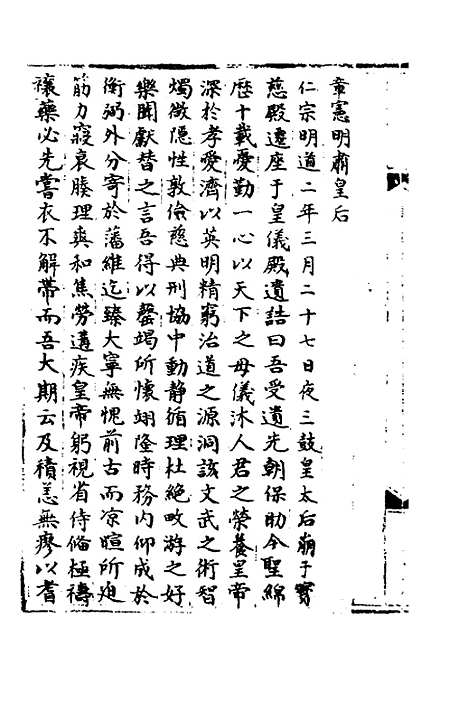 章憲明肅皇后
仁宗明道二年三月二十七日夜三鼓皇太后崩于寳
慈殿遷座于皇儀殿遺誥曰吾受遺先朝保助今聖綿
歴十載憂勤一心以天下之母儀沐人君之榮養皇帝
深於孝愛濟以英明精窮治道之源洞該文武之術智
燭微隱性敦儉慈典刑協中動静循理杜絶畋游之好
樂聞獻替之言吾得以罄竭所懷翊隆時務内仰成於
衡弼外分寄於藩維迄臻大寧無愧前古而凉暄所廹
筋力寢衰腠理爽和焦勞遘疾皇帝躬視省侍脩極禱
禳藥必先嘗衣不解帶而吾大期云及積恙無瘳以耆